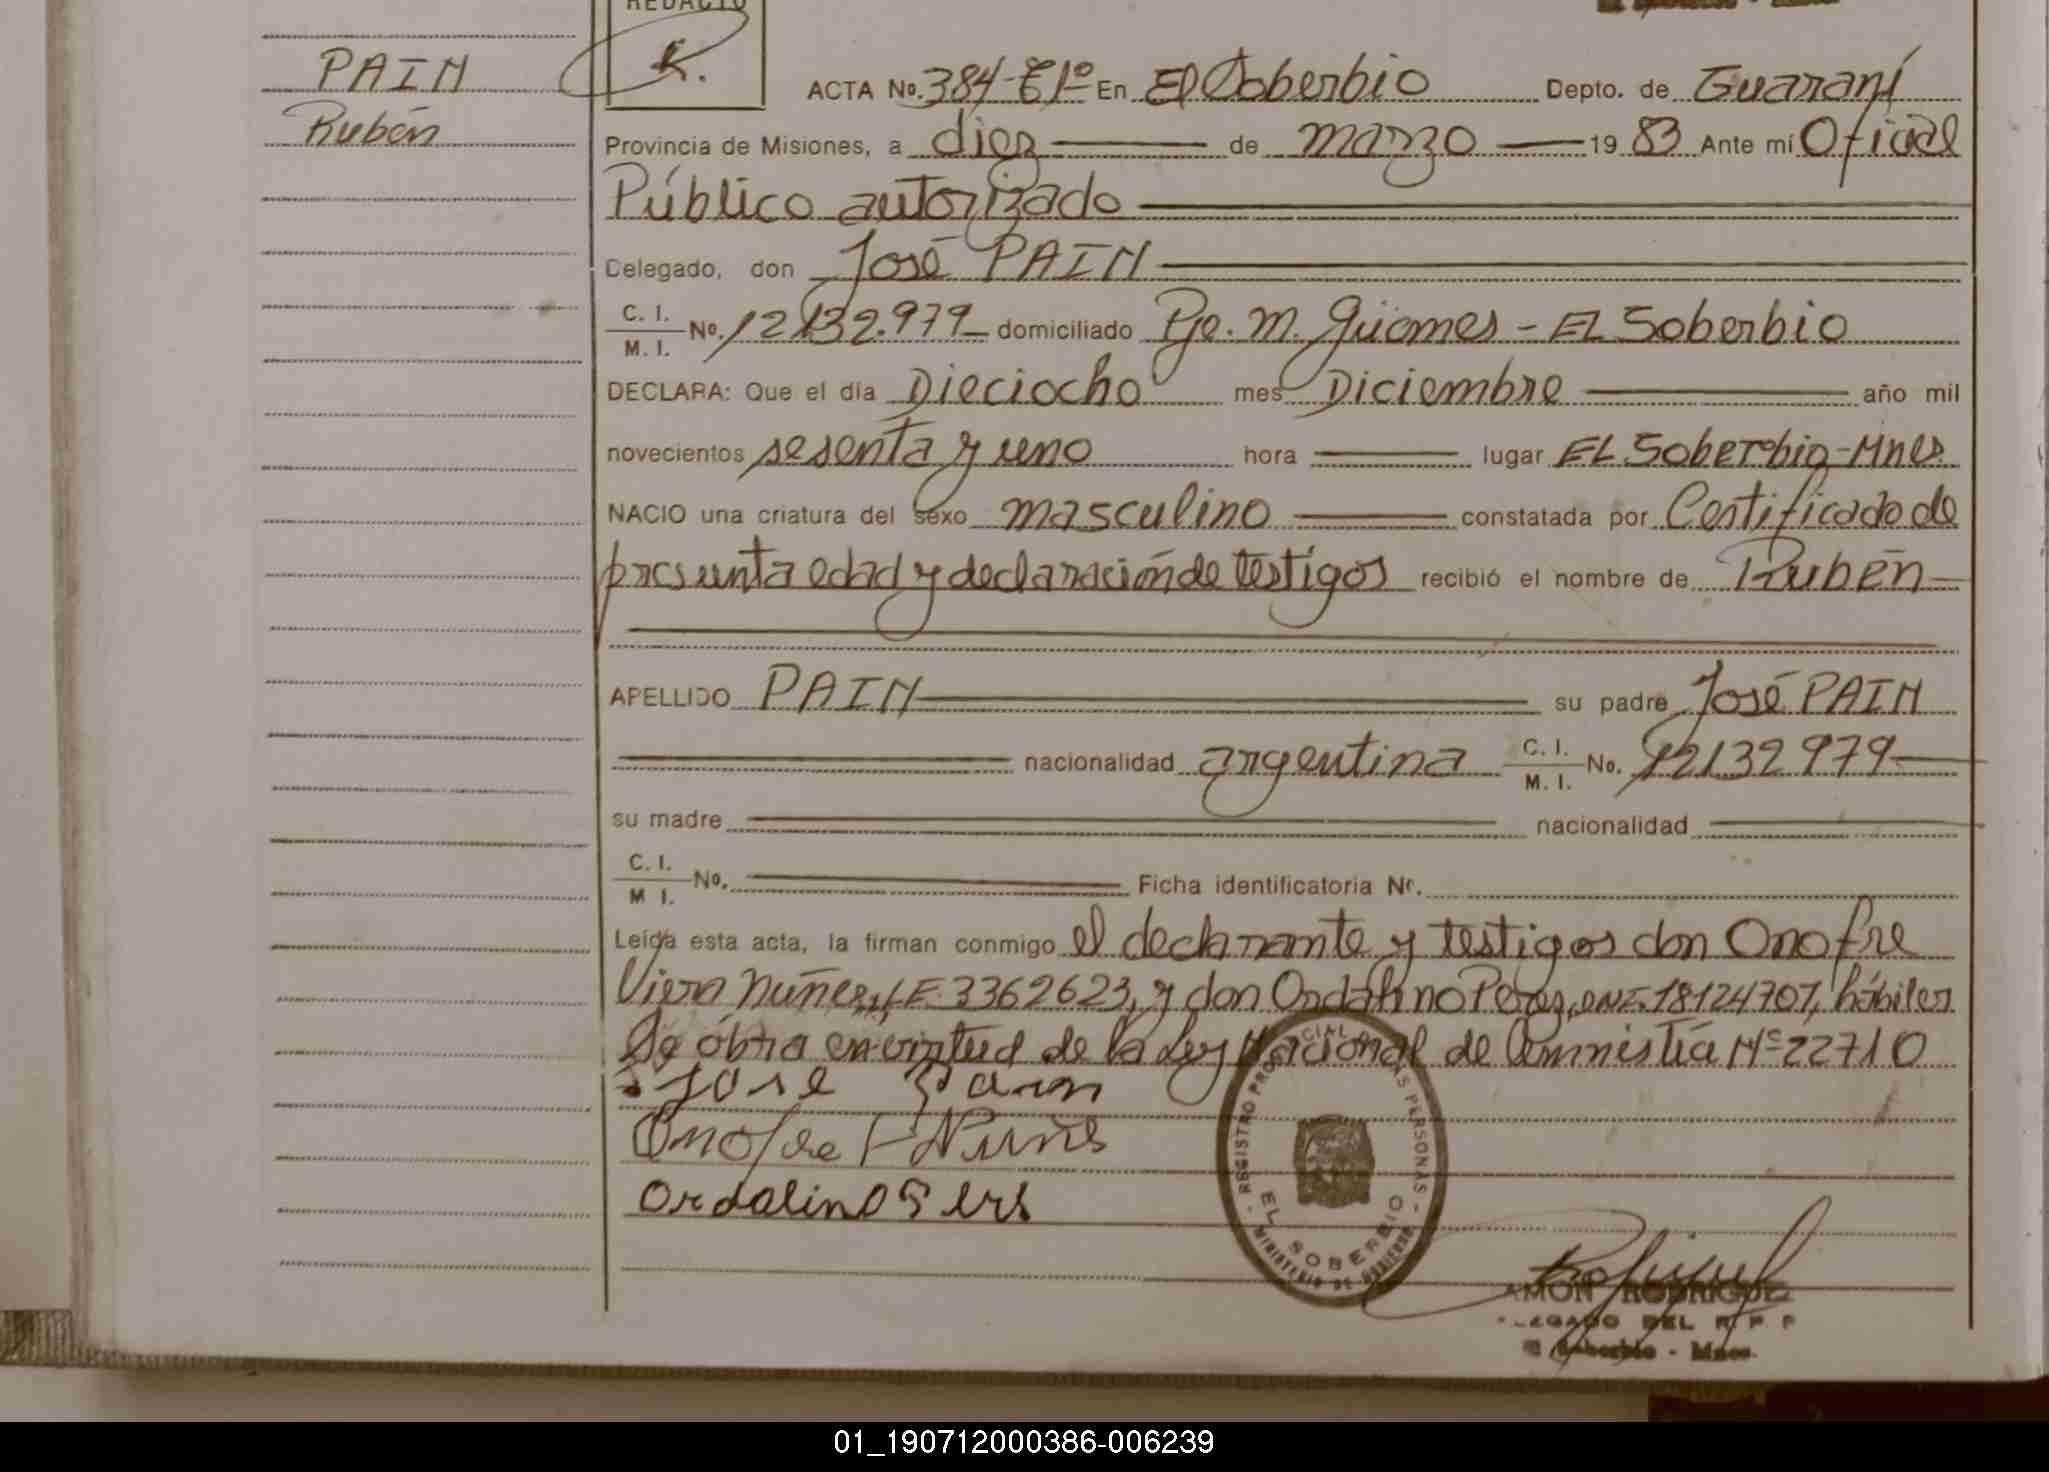 REDACTO
PAIN
Rubén
K.
ACTA No. 384-Tº1º En El Soberbio Depto. de Guaraní
Provincia de Misiones, a diez de marzo 19 83 Ante mí Oficial
Público autorizado
Delegado, don José PAIN
C. I.
M. I. No. 12132.979 domiciliado Pje. M. Güemes - EL Soberbio
DECLARA: Que el día Dieciocho mes Diciembre año mil
novecientos sesenta y uno hora lugar EL Soberbio-Mnes
NACIO una criatura del sexo masculino constatada por Certificado de
presunta edad y declaración de testigos recibió el nombre de Rubén
APELLIDO PAIN su padre José PAIN
nacionalidad argentina C. I. M. I. No. 12132979
su madre nacionalidad
C. I. M I. No. Ficha identificatoria Nr.
Leída esta acta, la firman conmigo el declarante y testigos don Onofre
Viera Núñez, L.E. 3362623, y don Ordalino Perez, DNI. 18124707, hábiles
Se obra en virtud de la Ley Nacional de Amnistía Nº 22710
José Pain
Onofre V Nuñes
Ordalino Peres
REGISTRO PROVINCIAL DE LAS PERSONAS
EL SOBERBIO
MINISTERIO DE GOBIERNO
AMON RODRIGUEZ
LEGADO DEL R P P
El Soberbio - Mnes.
01_190712000386-006239